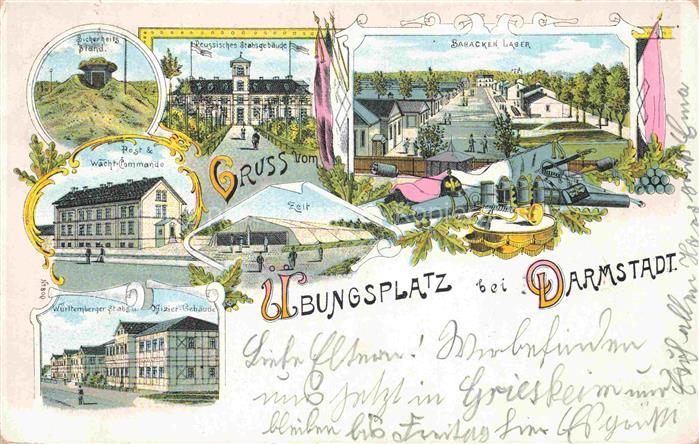 Sicherheits
Stand.
Preussisches Stabsgebäude
Baracken Lager
Post &
Wacht-Commando
Gruss vom
Zelt
Übungsplatz bei Darmstadt.
Württemberger Stabs u. Offizier-Gebäude
Liebe Eltern! Wir befinden
uns jetzt in Griesheim und
bleiben bis Freitag hier Es grüßt